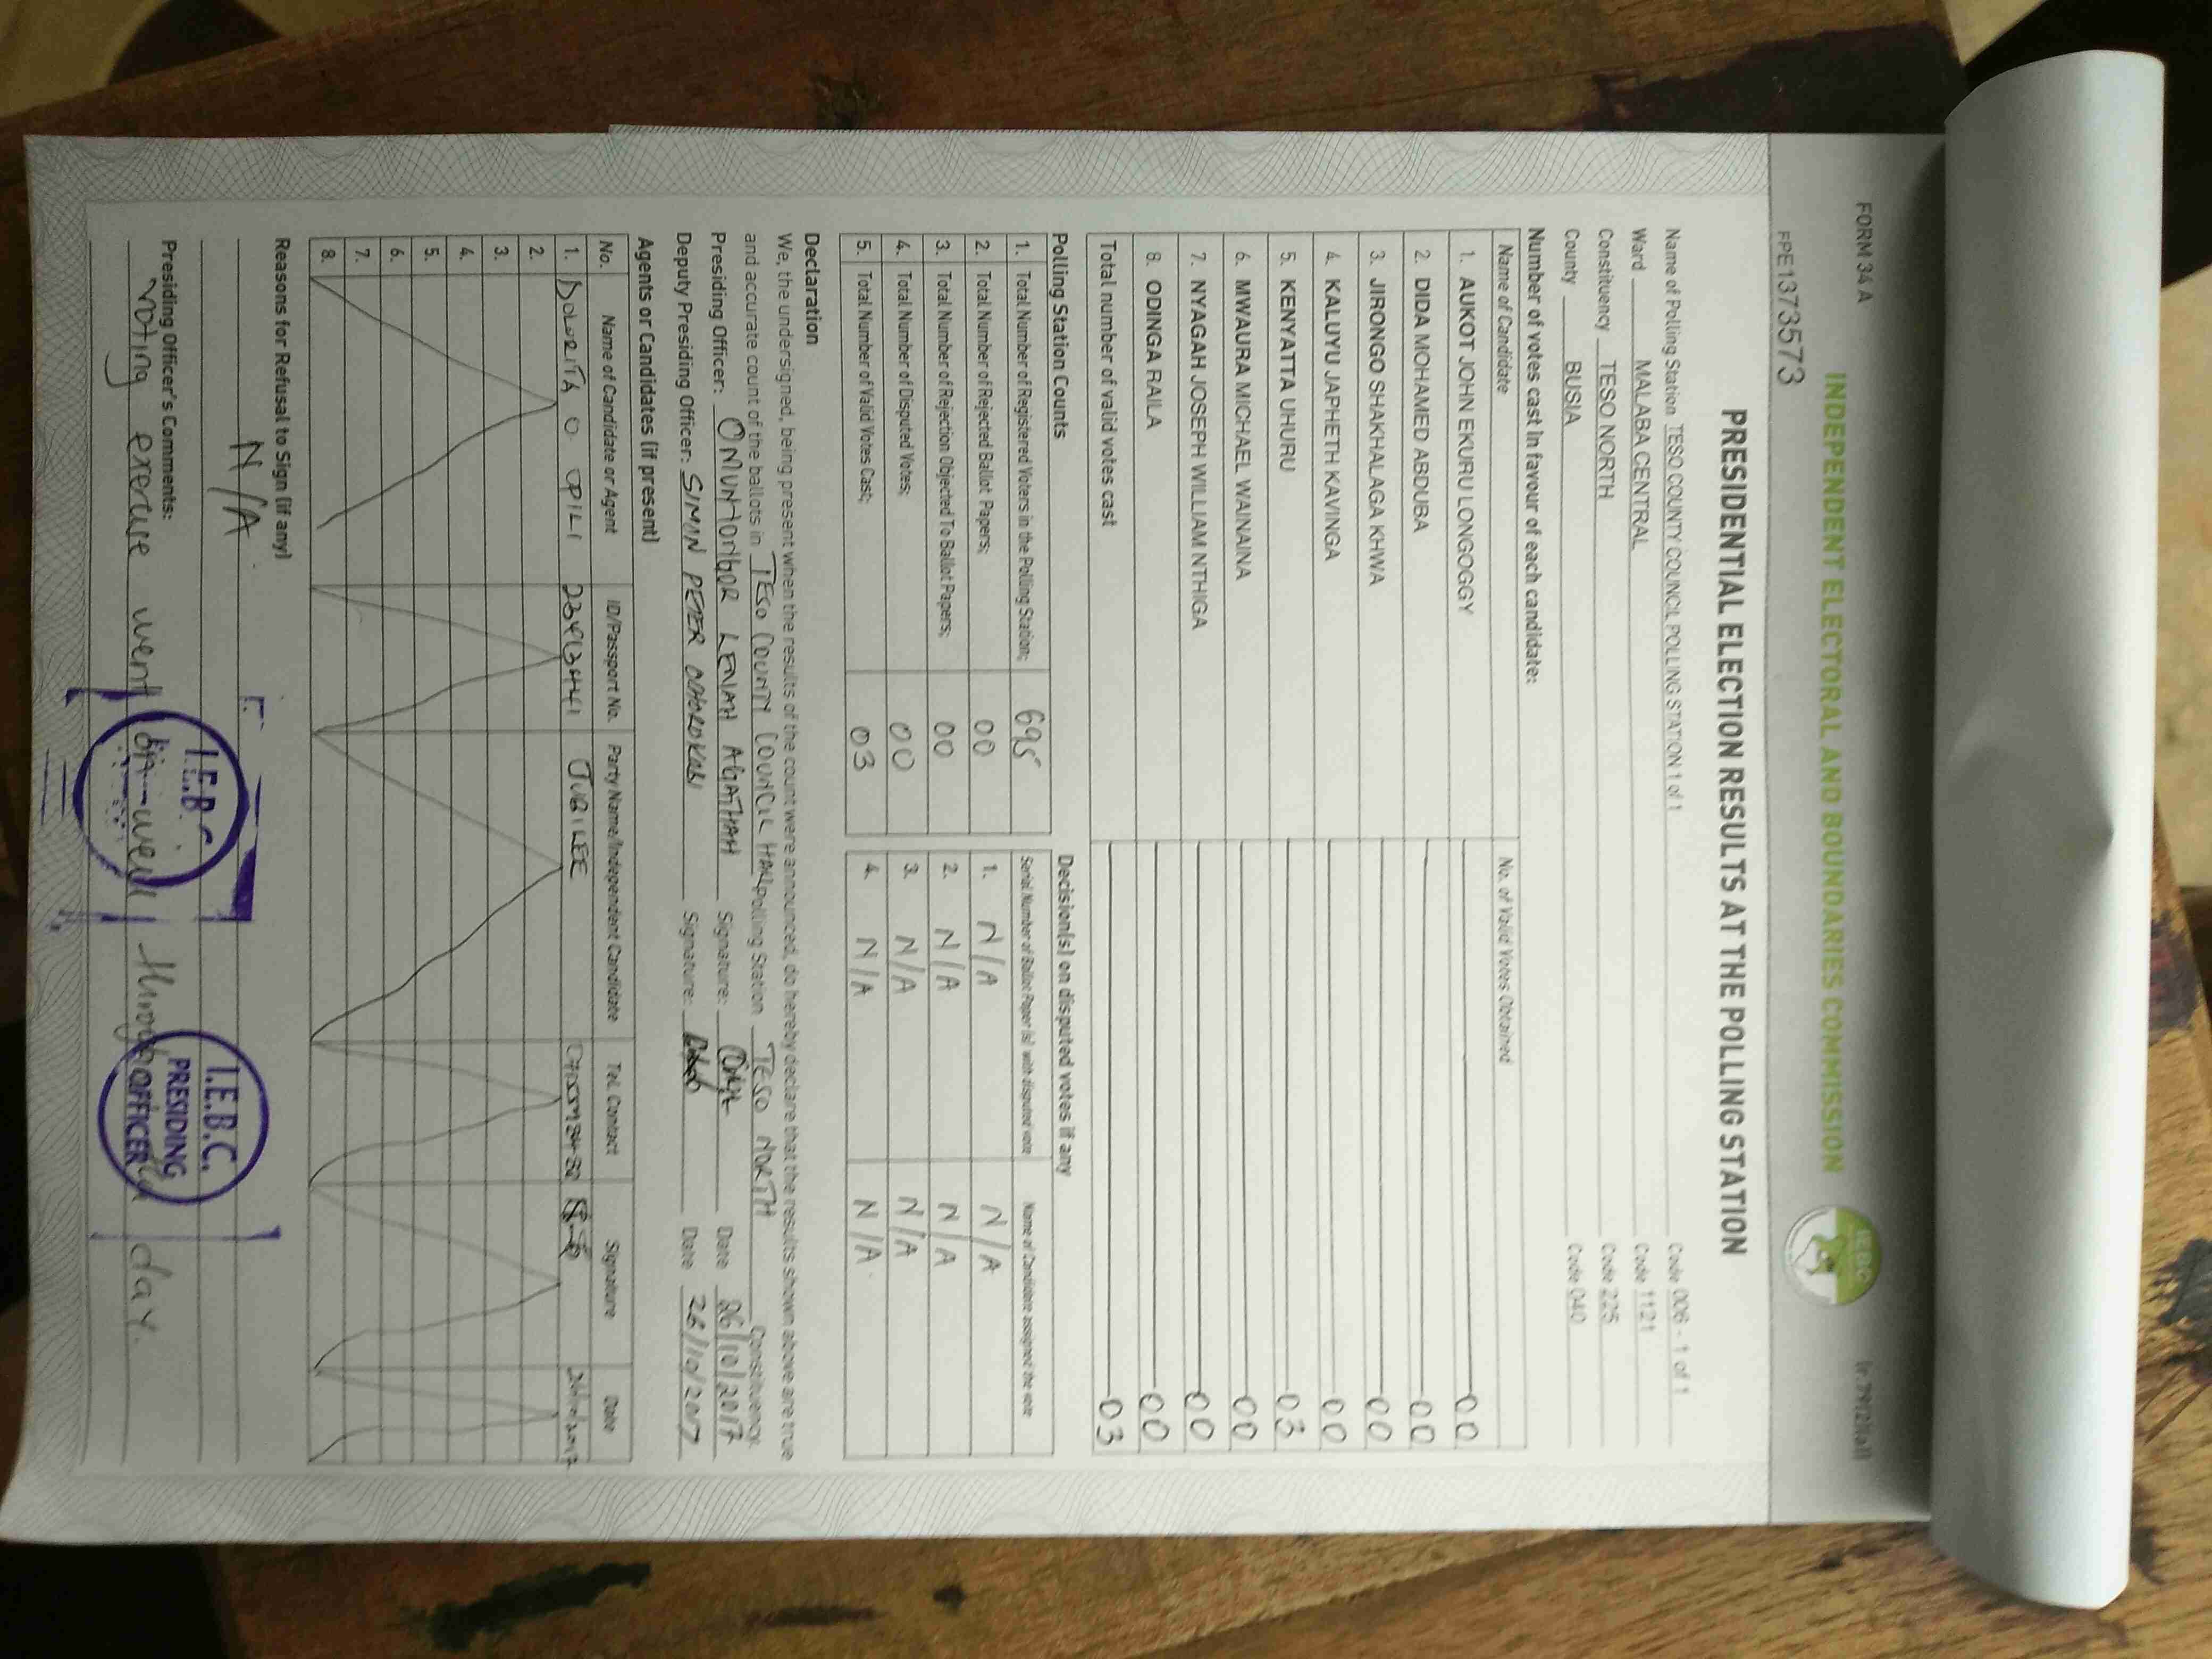 FORM 34 A
Ir. 79(2)(a)
INDEPENDENT ELECTORAL AND BOUNDARIES COMMISSION
IEBC
FPE1373573
PRESIDENTIAL ELECTION RESULTS AT THE POLLING STATION
Name of Polling Station TESO COUNTY COUNCIL POLLING STATION 1 of 1 Code 006 - 1 of 1
Ward MALABA CENTRAL Code 1121
Constituency TESO NORTH Code 225
County BUSIA Code 040
Number of votes cast in favour of each candidate:
Name of Candidate No. of Valid Votes Obtained
1. AUKOT JOHN EKURU LONGOGGY 00
2. DIDA MOHAMED ABDUBA 00
3. JIRONGO SHAKHALAGA KHWA 00
4. KALUYU JAPHETH KAVINGA 00
5. KENYATTA UHURU 03
6. MWAURA MICHAEL WAINAINA 00
7. NYAGAH JOSEPH WILLIAM NTHIGA 00
8. ODINGA RAILA 00
Total number of valid votes cast 03
Polling Station Counts Decision(s) on disputed votes if any
Serial Number of Ballot Paper (s) with disputed vote Name of Candidate assigned the vote
1. Total Number of Registered Voters in the Polling Station; 695
2. Total Number of Rejected Ballot Papers; 00 1. N/A N/A
3. Total Number of Rejection Objected To Ballot Papers; 00 2. N/A N/A
4. Total Number of Disputed Votes; 00 3. N/A N/A
5. Total Number of Valid Votes Cast; 03 4. N/A N/A
Declaration
We, the undersigned, being present when the results of the count were announced, do hereby declare that the results shown above are true
and accurate count of the ballots in TESO COUNTY COUNCIL HALL Polling Station TESO NORTH Constituency.
Presiding Officer: Signature: Date 26/10/2017
Deputy Presiding Officer: SIMON PETER Signature: Date 26/10/2017
Agents or Candidates (if present)
No. Name of Candidate or Agent ID/Passport No. Party Name/Independent Candidate Tel. Contact Signature Date
1. DOLORITA O OPILI JUBILEE
2.
3.
4.
5.
6.
7.
8.
Reasons for Refusal to Sign (if any)
N/A
Presiding Officer's Comments:
voting exercise went on well throughout day.
I.E.B.C
I.E.B.C.
PRESIDING
OFFICER